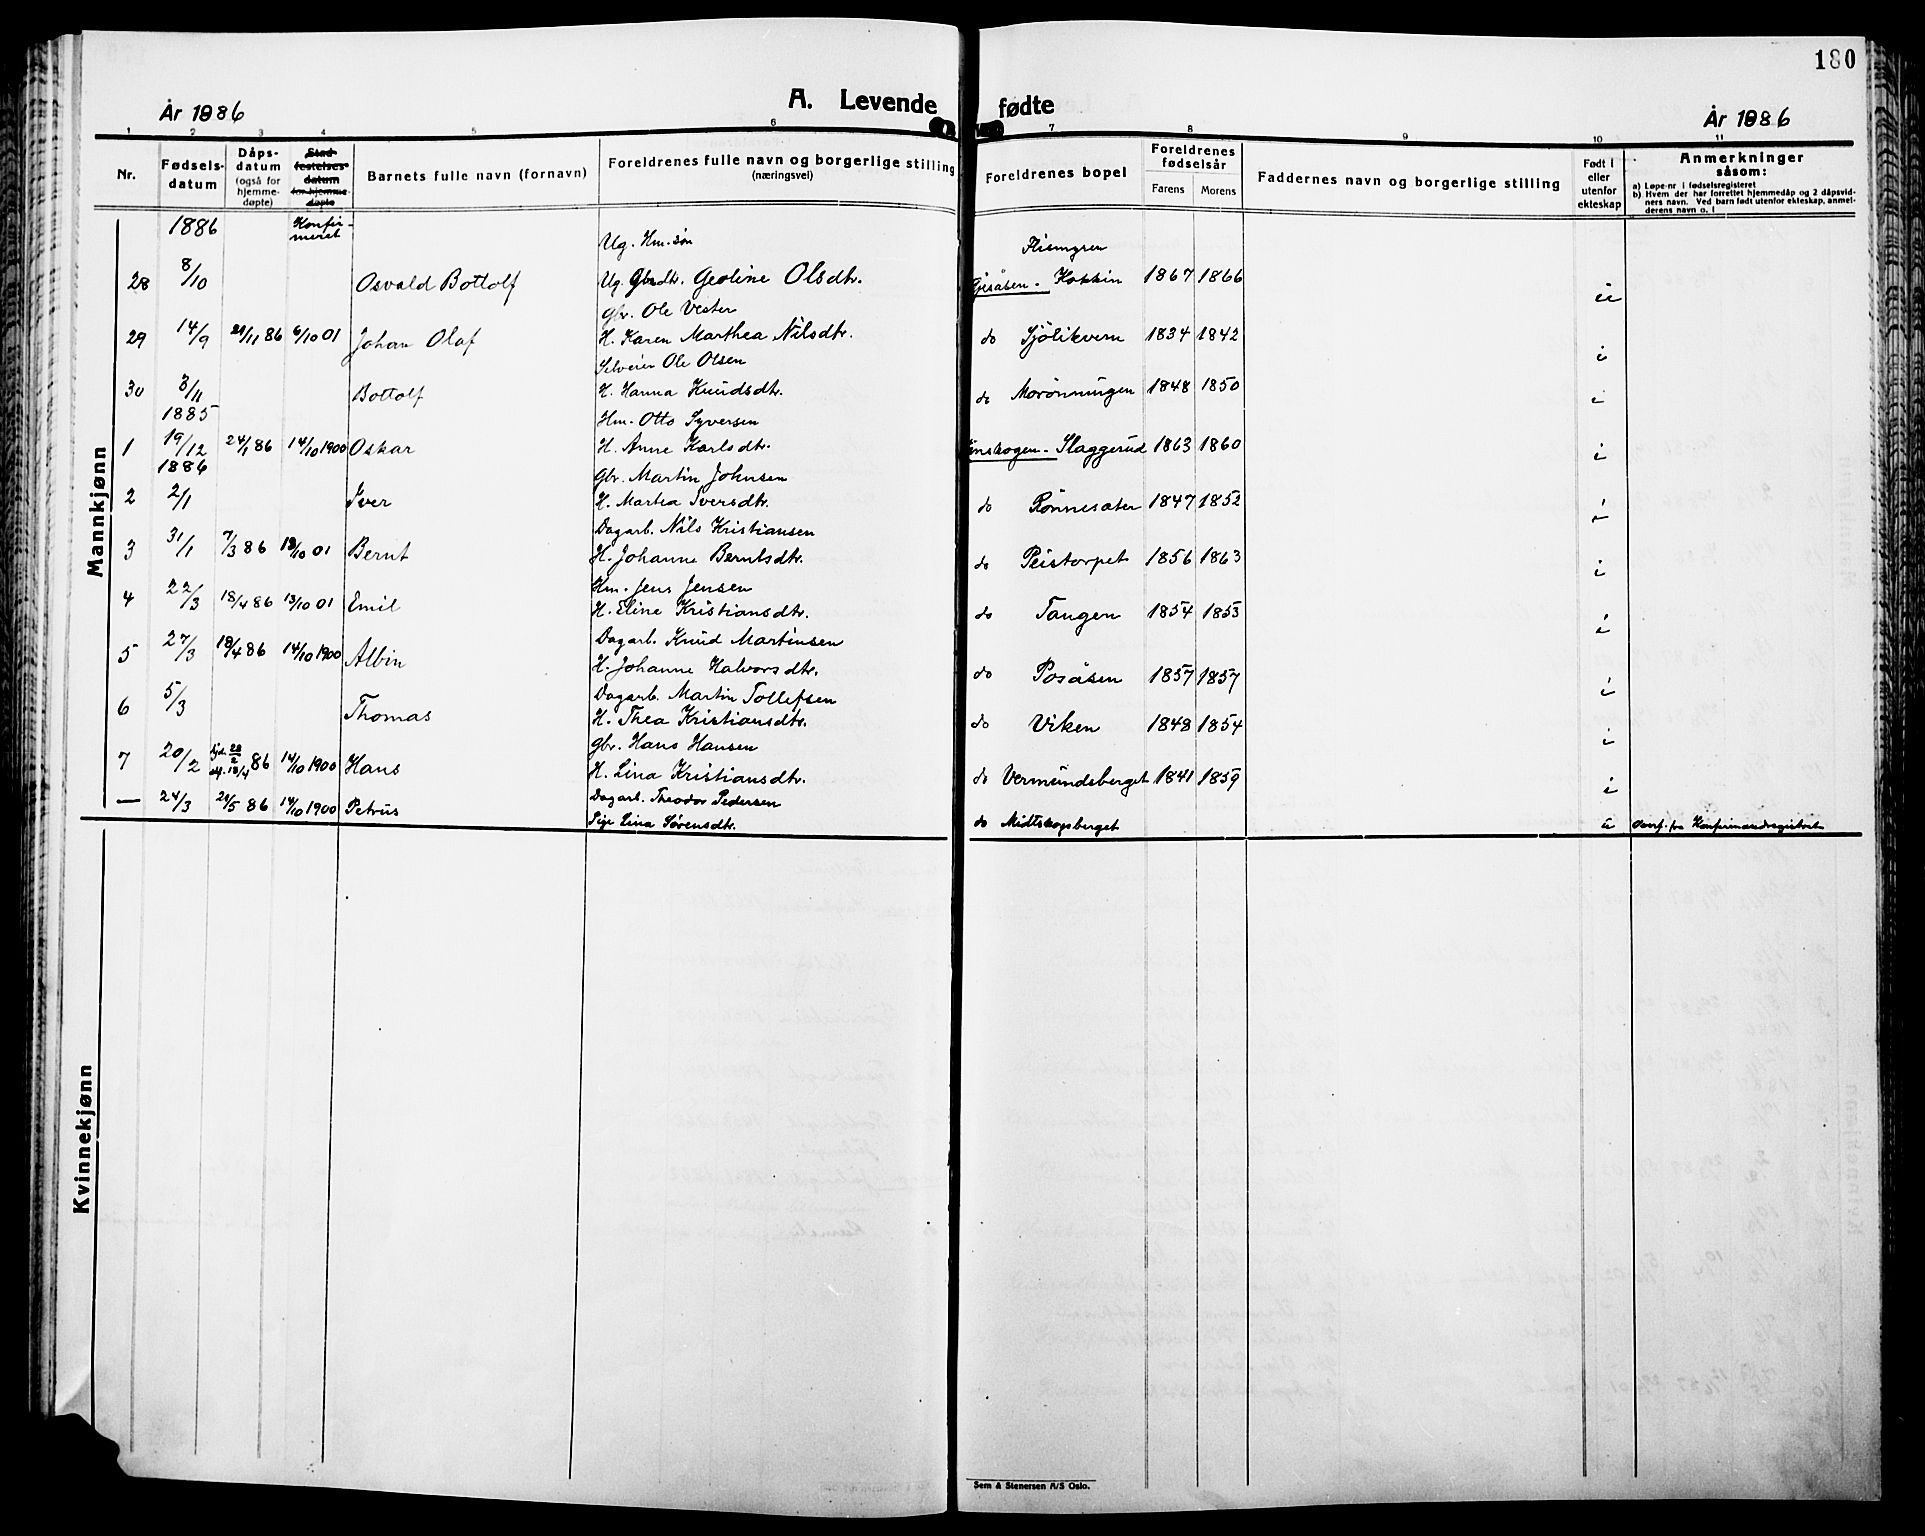 180
År 1886
A. Levende fødte
År 1886
1 2 3 4 5 6 7 8 9 10 11
Nr.
Fødsels-
datum
Dåps-
datum
(også for
hjemme-
døpte)
Stad-
festelses-
datum
for hjemme-
døpte
Barnets fulle navn (fornavn)
Foreldrenes fulle navn og borgerlige stilling
(næringsvei)
Foreldrenes bopel
Foreldrenes
fødselsår
Farens Morens
Faddernes navn og borgerlige stilling
Født i
eller
utenfor
ekteskap
Anmerkninger
såsom:
a) Løpe-nr i fødselsregisteret
b) Hvem der har forrettet hjemmedåp og 2 dåpsvid-
ners navn. Ved barn født utenfor ekteskap, anmel-
derens navn o. l
Mannkjønn
1886 Konfir-
meret
Ug. Hm. søn Flismyren
28 8/10 Osvald Bottolf Ug. Gbrdtr. Geoline Olsdtr. Gjesåsen - Kokkin 1867 1866 u
Gbr. Ole Vester
29 14/9 21/11 86 6/10 01 Johan Olaf H. Karen Marthea Nilsdtr. do Sjölikvern 1834 1842 i
Selveier Ole Olsen
30 3/11 Bottolf H. Hanna Knudsdtr. do Morönningen 1848 1850 i
1885 Hm. Otto Syversen
1 19/12 24/1 86 14/10 1900 Oskar H. Anne Karlsdtr. Slaggerud 1863 1860 i
1886 Gbr. Martin Johnsen
2 2/1 Iver H. Martea Iversdtr. do Rönnesæter 1847 1852 i
Dagarb. Nils Kristiansen
3 31/1 7/3 86 13/10 01 Bernt H. Johanne Berntsdtr. do Peistorpet 1856 1863 i
Hm. Jens Jensen
4 22/3 18/4 86 13/10 01 Emil H. Eline Kristiansdtr. do Tangen 1854 1853 i
Dagarb. Knud Martinsen
5 27/3 18/4 86 14/10 1900 Albin H. Johanne Halvorsdtr. do Posåsen 1857 1857 i
Dagarb. Martin Tollefsen
6 5/3 Thomas H. Thea Kristiansdtr. do Viken 1848 1854 i
Gbr. Hans Hansen
7 20/2 hjd. 28/2 st. 18/4 86 14/10 1900 Hans H. Lina Kristiansdtr. do Vermundsberget 1841 1859 i
Dagarb. Theodor Pedersen
— 24/3 21/5 86 14/10 1900 Petrus Pige Lina Sörensdtr. do Midtskogsberget u Overf. fra Konfirmandregistret
Kvinnekjønn
Sem & Stenersen A/S Oslo.